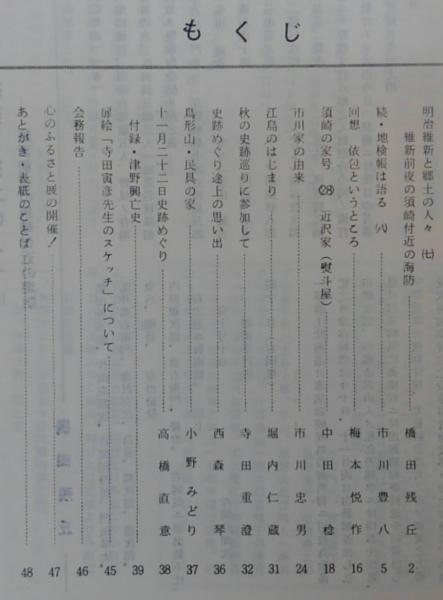 もくじ
明治維新と郷土の人々 (七)
維新前夜の須崎付近の海防 橋田残丘 2
続・地検帳は語る (八) 市川豊八 5
回想 依包というところ 梅本悦作 16
須崎の家号 (28) 近沢家(熨斗屋) 中田稔 18
市川家の由来 市川忠男 24
江島のはじまり 堀内仁蔵 31
秋の史跡巡りに参加して 寺田重澄 32
史跡めぐり途上の思い出 西森琴 36
鳥形山・民具の家 小野みどり 37
十一月二十二日史跡めぐり 高橋直意 38
付録・津野興亡史 39
扉絵「寺田寅彦先生のスケッチ」について 45
会務報告 46
心のふるさと展の開催! 47
あとがき・表紙のことば 48